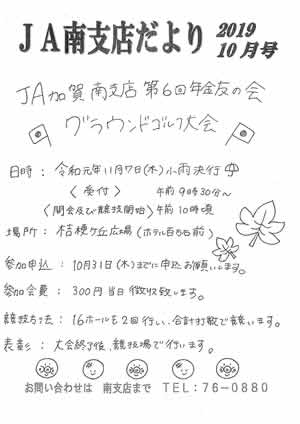 JA南支店だより 2019 10月号
JA加賀 南支店 第6回年金友の会
グラウンドゴルフ大会
日時： 令和元年11月7日(木)小雨決行
〈受付〉 午前9時30分～
〈開会及び競技開始〉午前10時頃
場所： 桔梗ヶ丘広場(ホテル百百前)
参加申込：10月31日(木)までに申込お願いします。
参加会費：300円当日徴収致します。
競技方法：16ホールを2回行い、合計打数で競います。
表彰：大会終了後、競技場で行います。
お問い合わせは 南支店まで TEL：76－0880